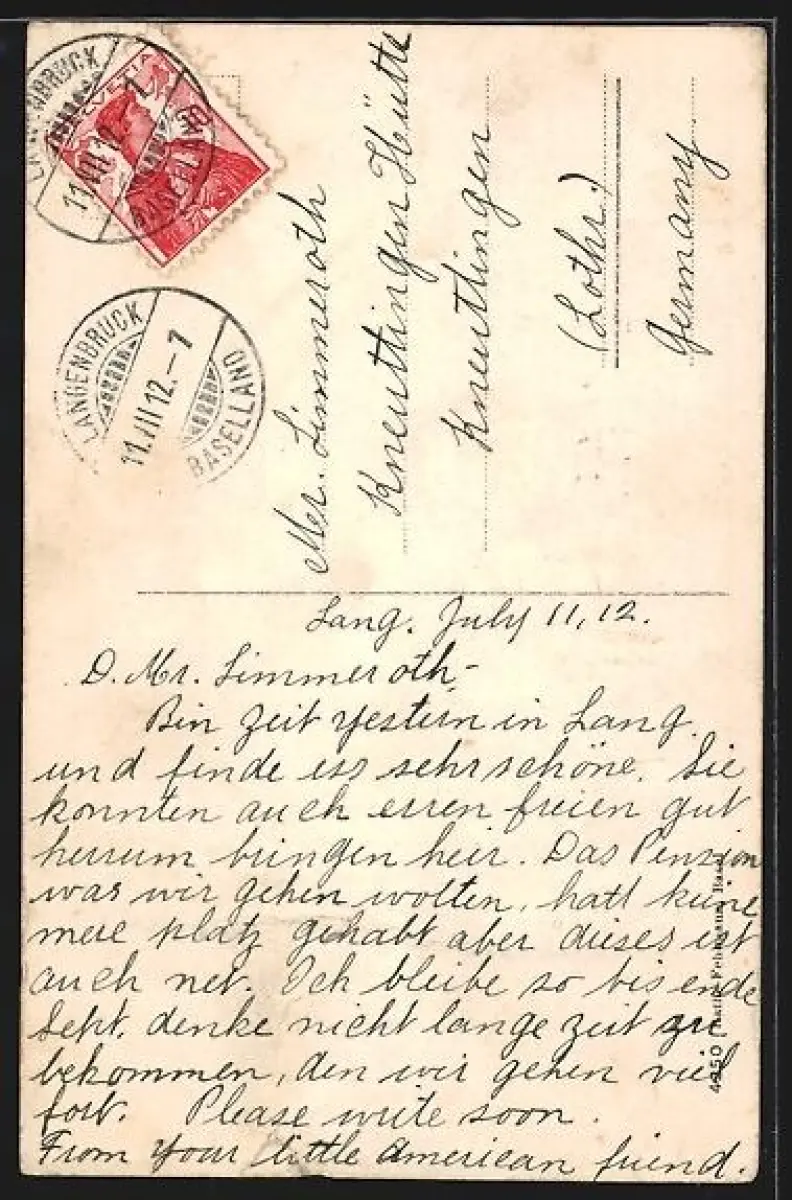 LANGENBRUCK
HELVETIA
10
11.VII 12.-7
LANGENBRUCK
11.VII 12.-7
BASELLAND
Mr. Limmeroth
Kneuttingen Hütte
Kneuttingen
(Lothr.)
Germany
Lang. July 11, 12.
D. Mr. Limmeroth-
Bin zeit yestern in Lang.
und finde ess sehr schöne. Sie
konnten auch erren freien gut
herrum bringen heir. Das Pension
was wir gehen wolten, hatt keine
mere platz gehabt aber dieses ist
auch net. Ich bleibe so bis ende
Sept. denke nicht lange zeit zu
bekommen, den wir gehen viel
fort. Please write soon.
From Your little American friend.